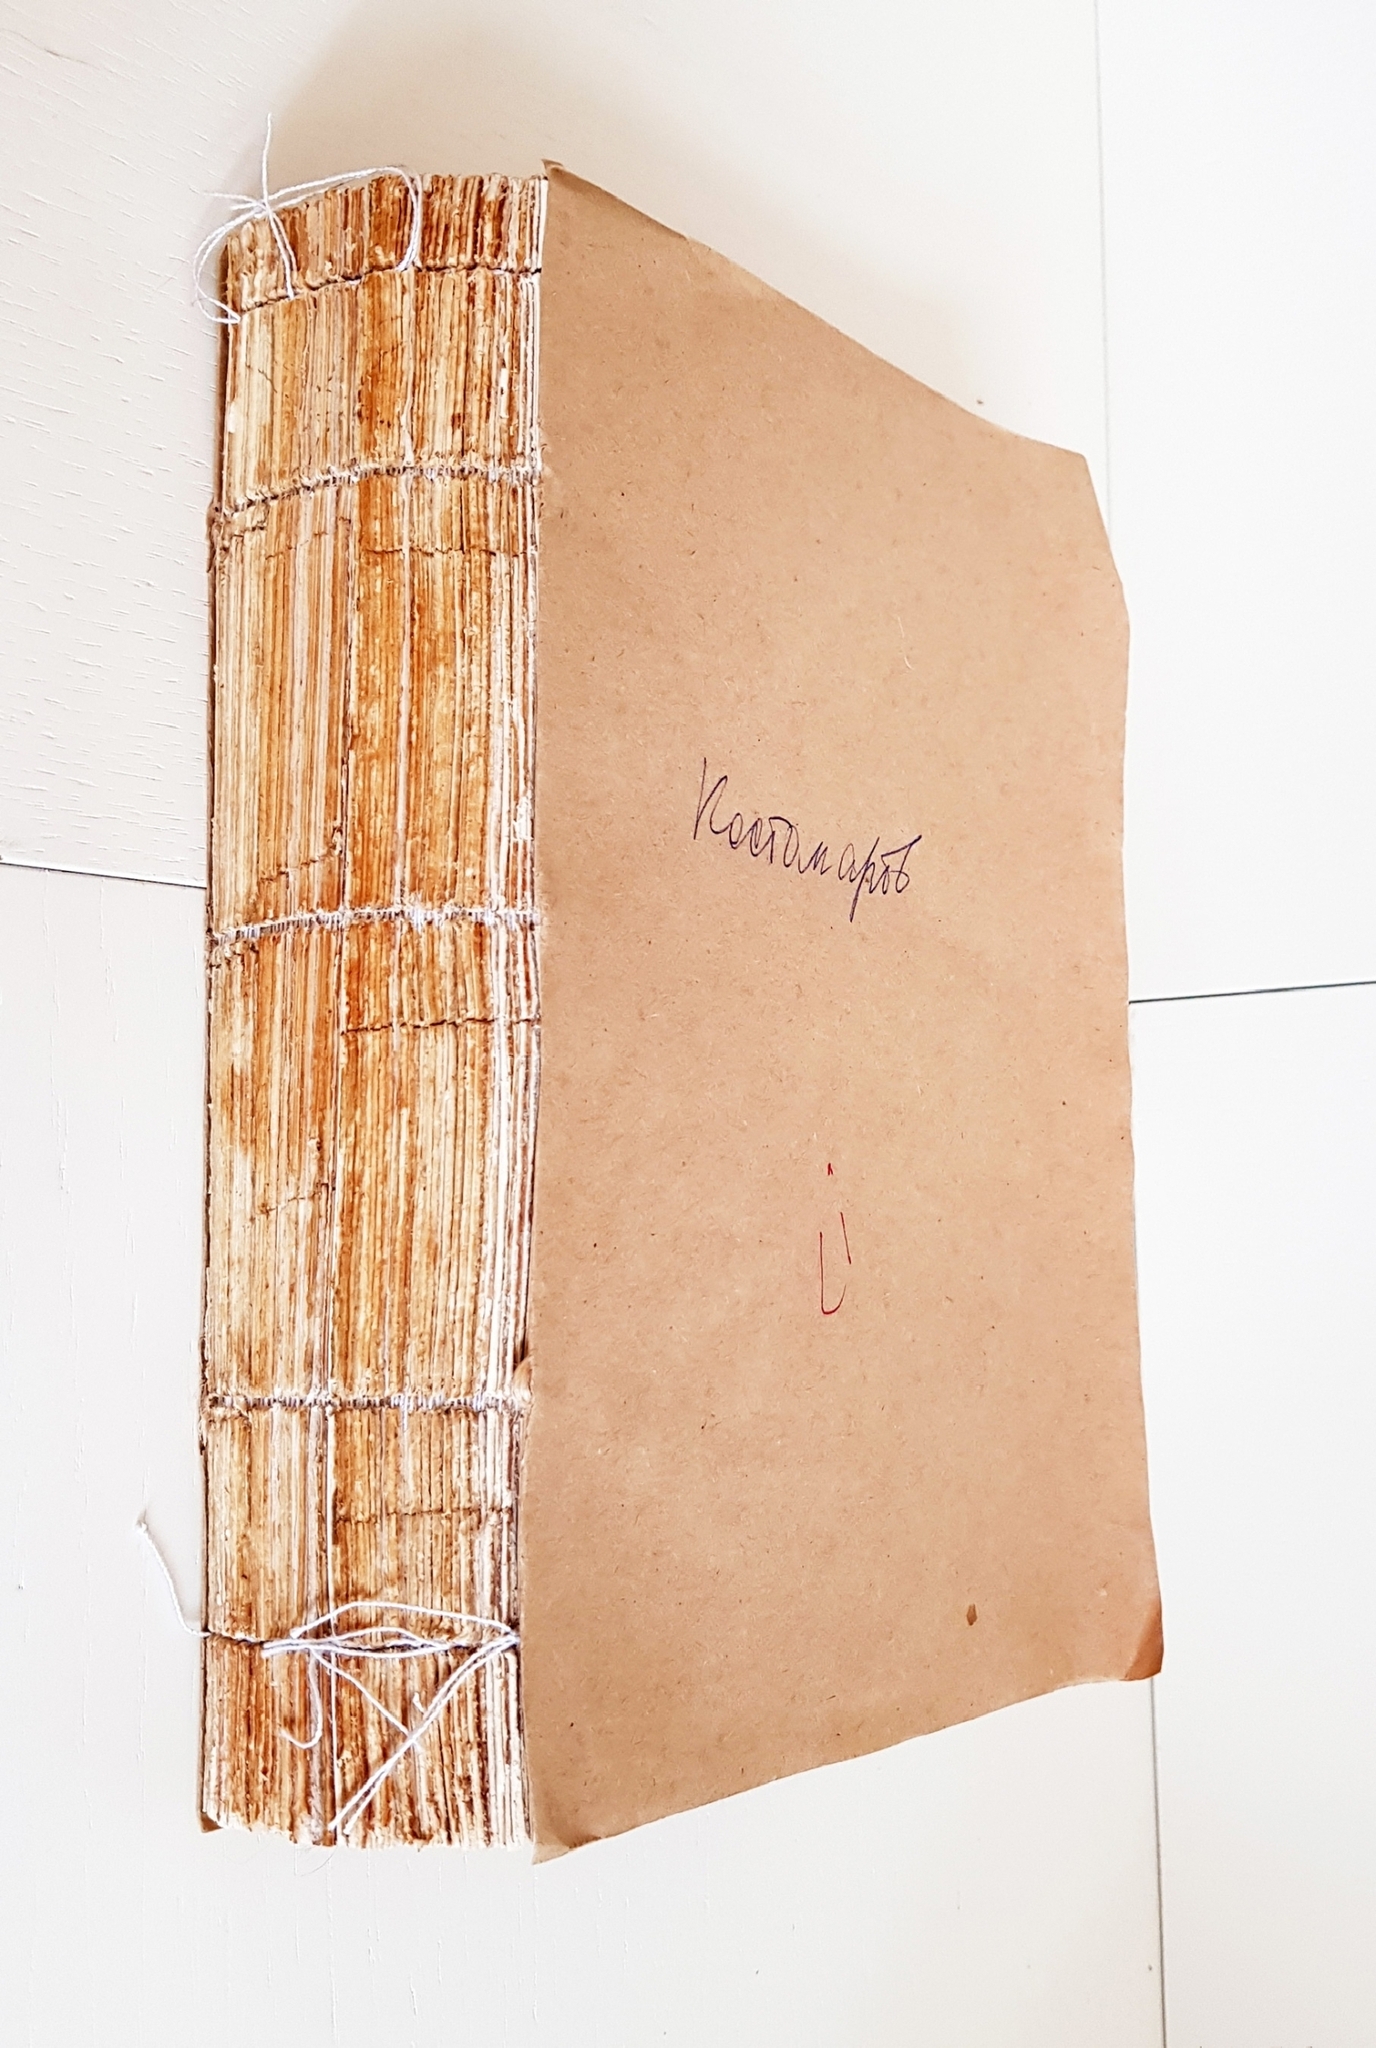 Костомаров